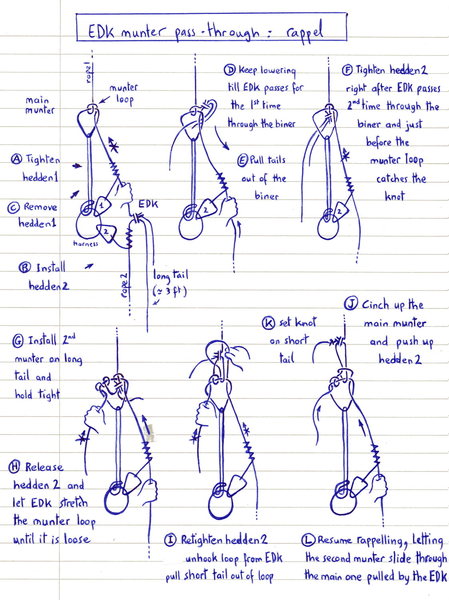 EDK munter pass-through : rappel
rope1
munter
loop
main
munter
A Tighten
hedden1
C Remove
hedden1
1
2
harness
EDK
B Install
hedden2
rope 2
long tail
(≈ 3 ft)
D Keep lowering
till EDK passes for
the 1st time
through the biner
E Pull tails
out of the
biner
2
F Tighten hedden2
right after EDK passes
2nd time through the
biner and just
before the
munter loop
catches the
knot
2
G Install 2nd
munter on long
tail and
hold tight
H Release
hedden 2 and
let EDK stretch
the munter loop
until it is loose
K set knot
on short
tail
I Retighten hedden2
unhook loop from EDK
pull short tail out of loop
J Cinch up the
main munter
and push up
hedden2
L Resume rappelling, letting
the second munter slide through
the main one pulled by the EDK